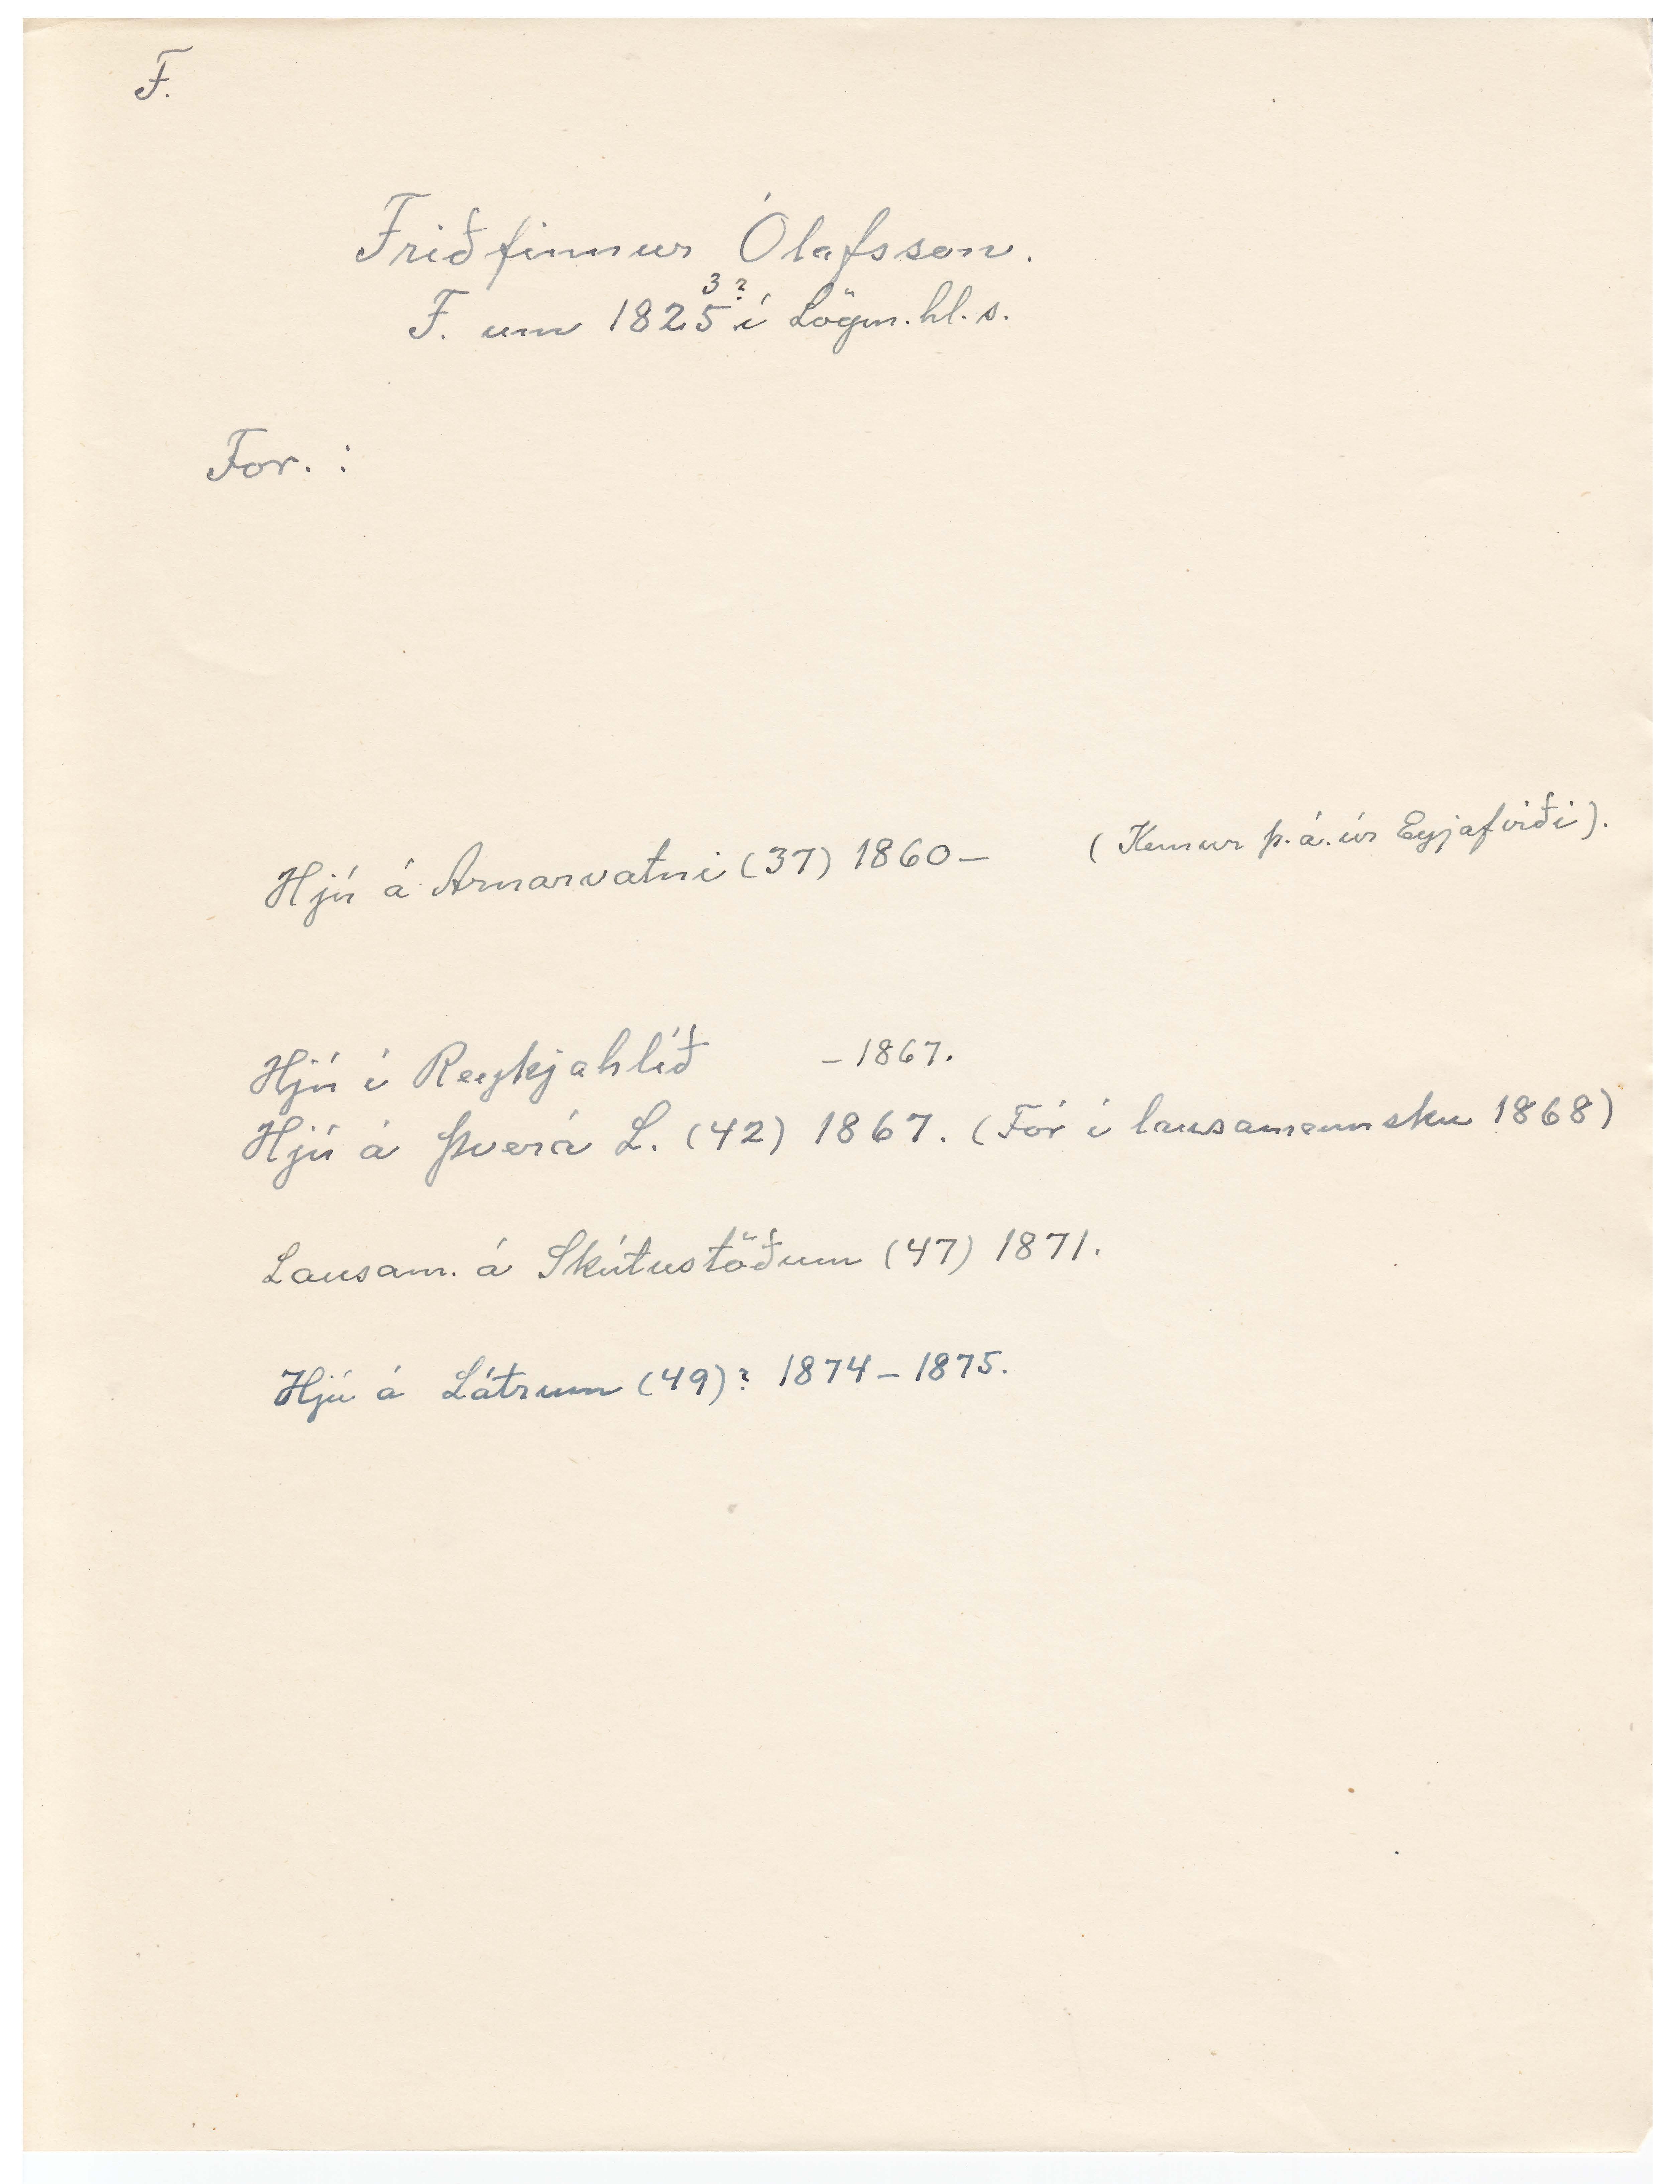 F.
Friðfinnur Ólafsson.
3?
F. um 1825 í Lögm.hl.s.
For. :
Hjú á Arnarvatni (37) 1860 – (Kemur þ. á. úr Eyjafirði).
Hjú í Reykjahlíð – 1867.
Hjú á Þverá L. (42) 1867. (Fór í lausamennsku 1868)
Lausam. á Skútustöðum (47) 1871.
Hjú á Látrum (49)? 1874 – 1875.